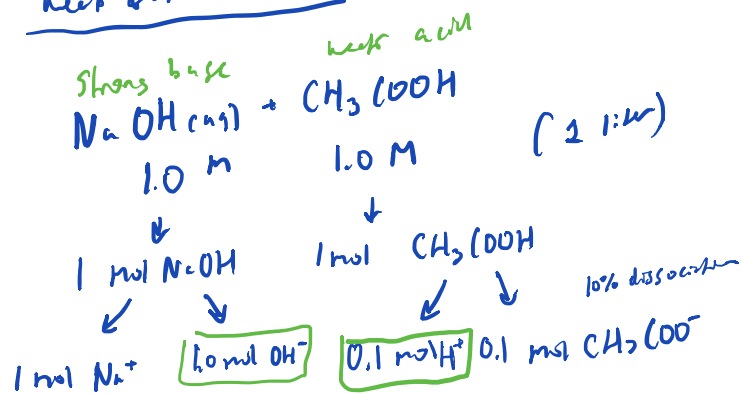 strong base weak acid
NaOH(aq) + CH3COOH
1.0 M 1.0 M (1 liter)
1 mol NaOH 1 mol CH3COOH
10% dissociation
1 mol Na+ 1.0 mol OH- 0.1 mol H+ 0.1 mol CH3COO-